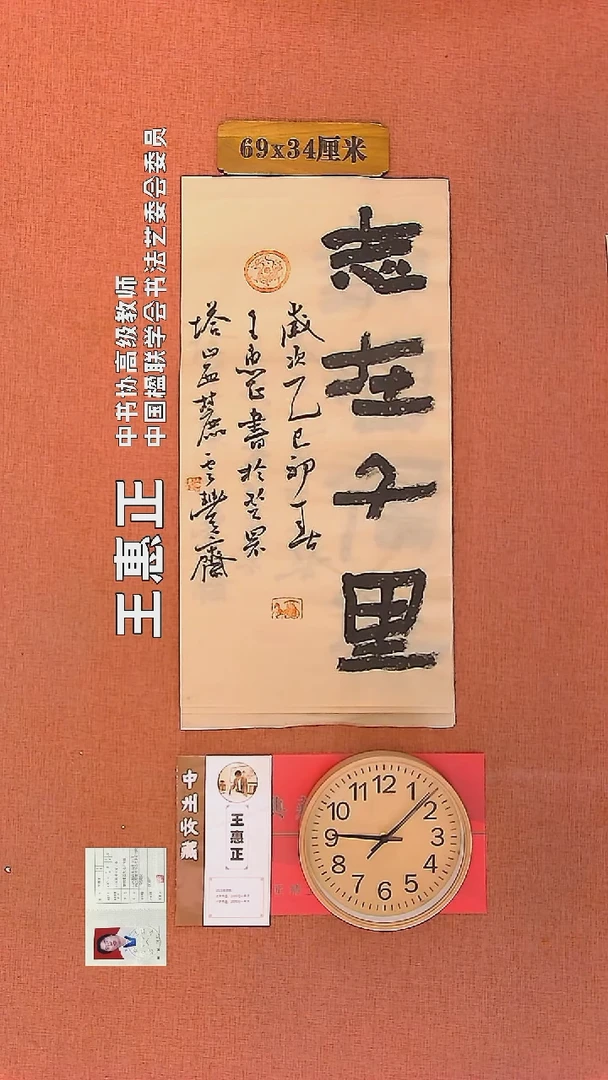 69x34厘米
志在千里
歲次乙巳卯春
王惠正書於翠累
塔山至麓云豐齋
王惠正
中书协高级教师
中国楹联学会书法艺委会委员
中
收藏
王惠正
12
1
2
3
4
5
6
7
8
9
10
11